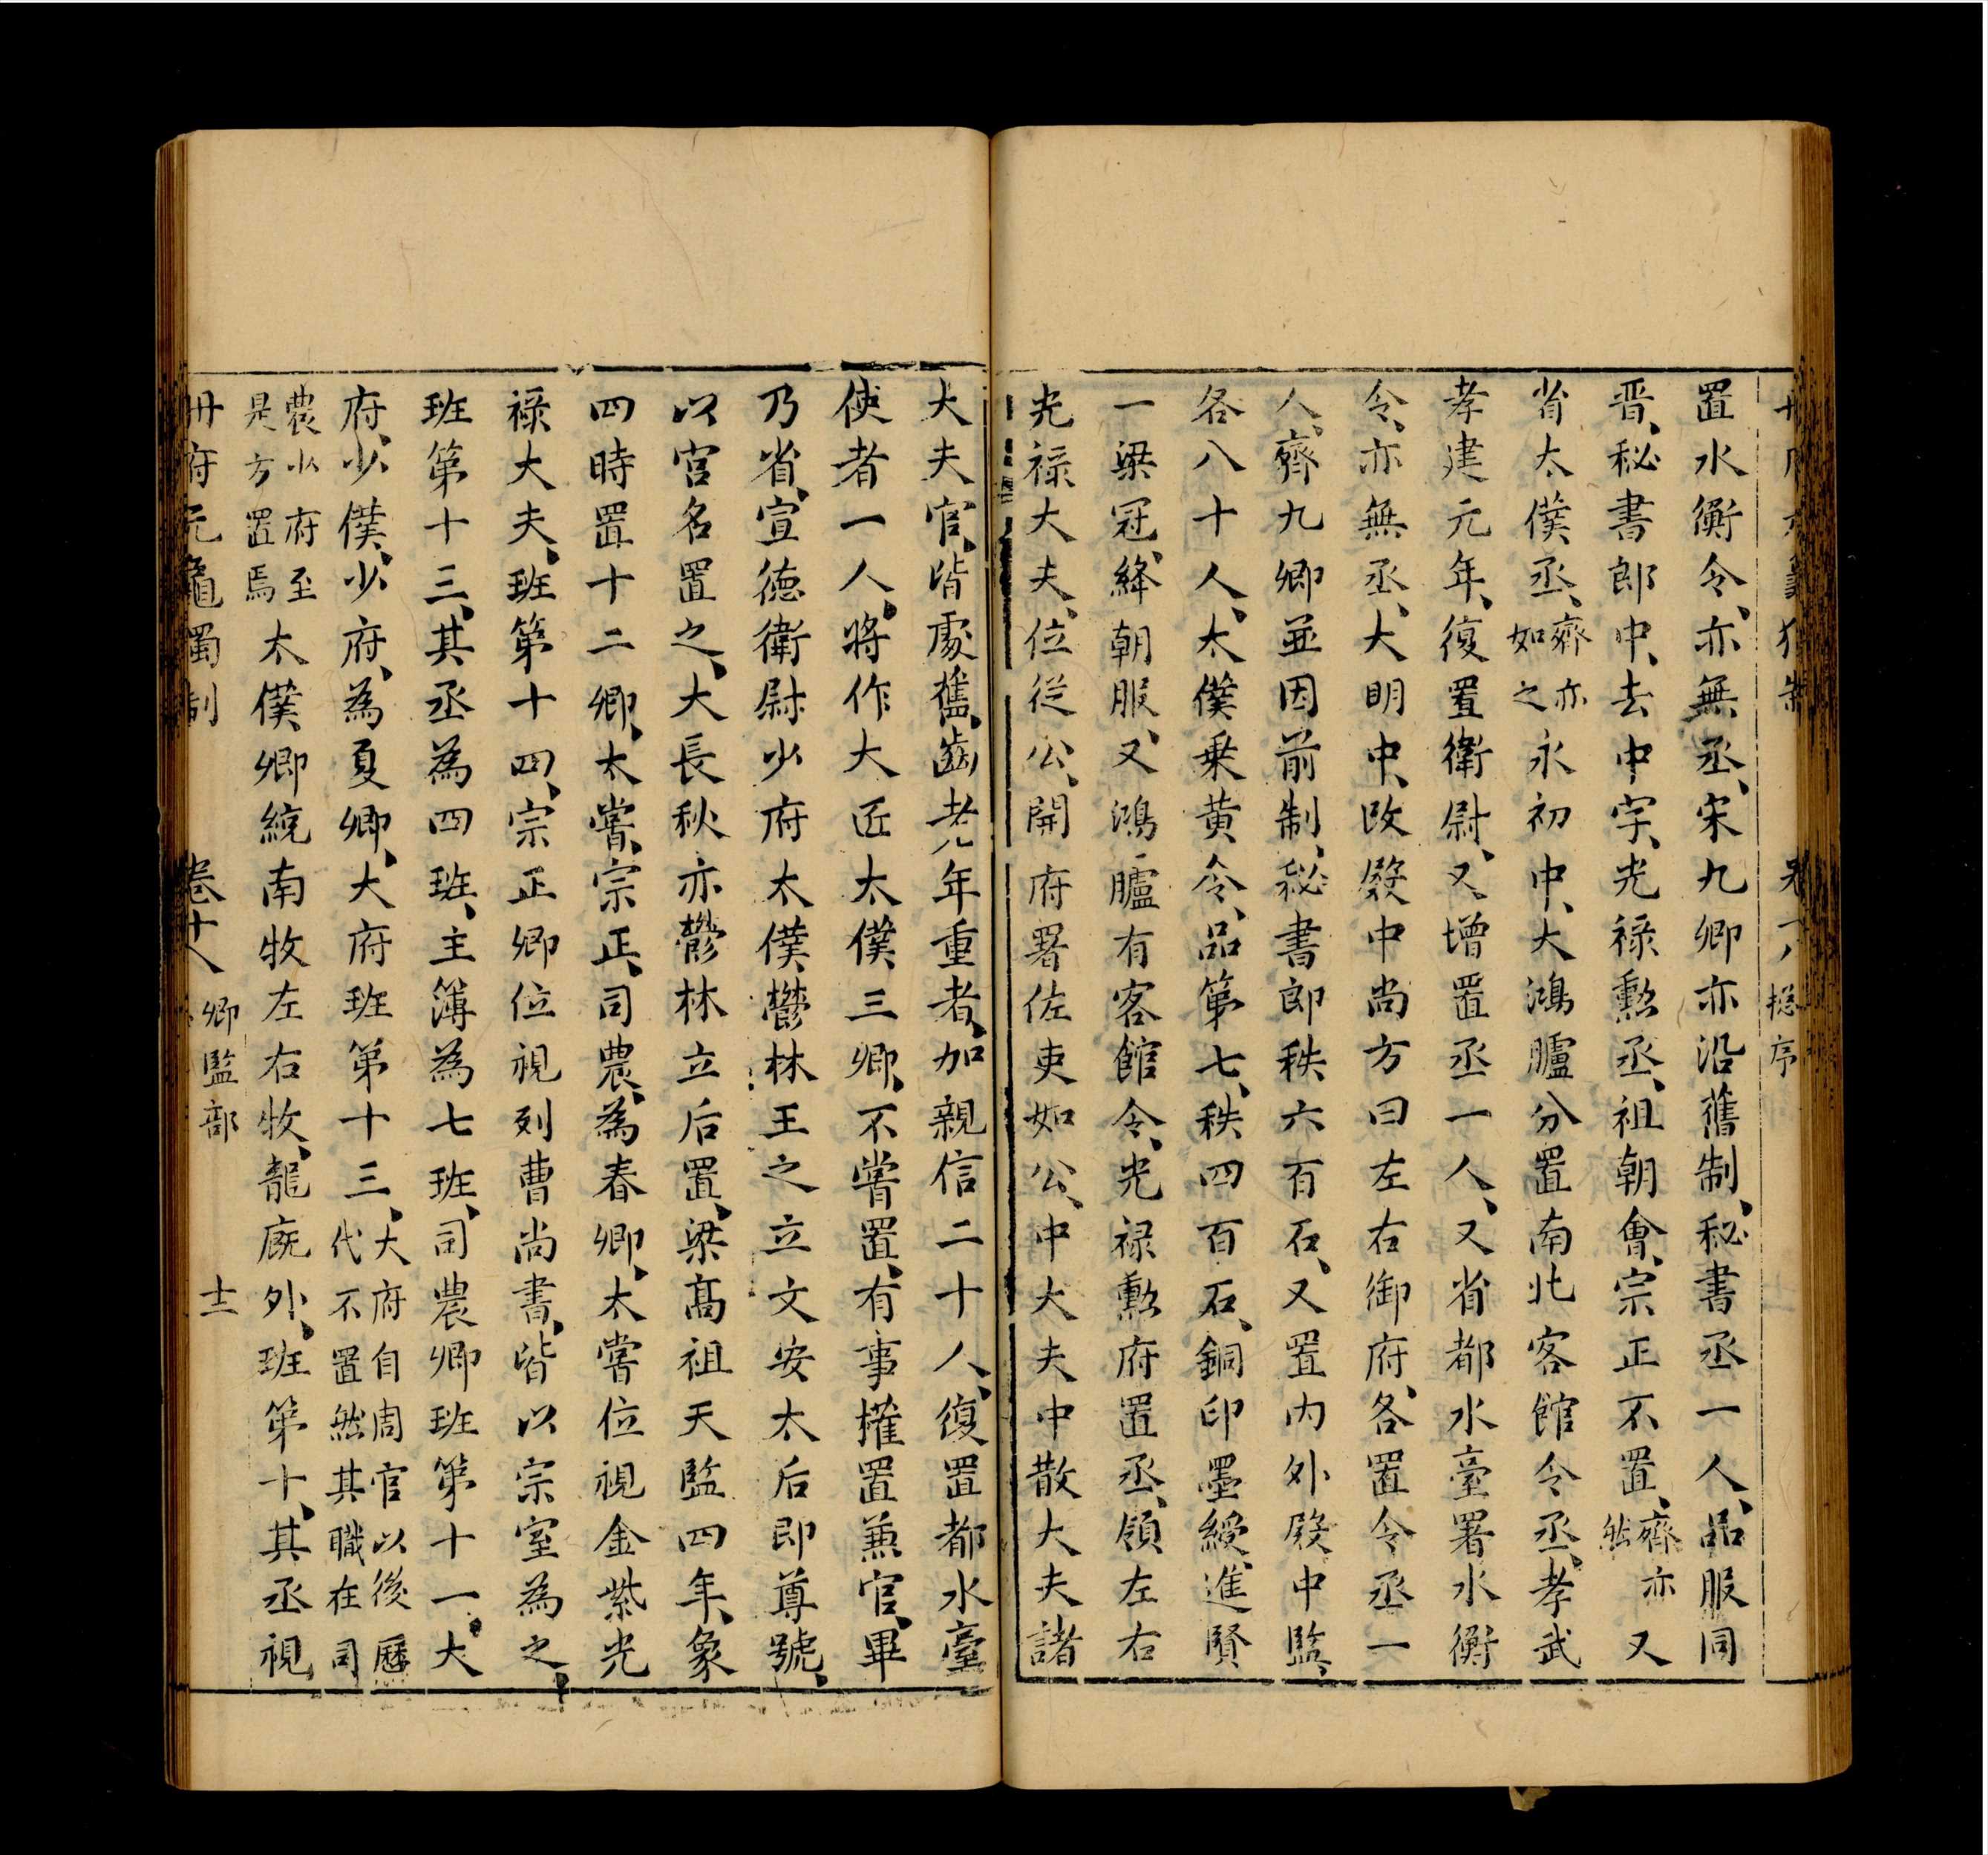 置水衡令、亦無丞、宋九卿亦沿舊制、秘書丞一人、品服同
晋、秘書郎中、去中字、光禄勲丞、祖朝會、宗正不置、齊亦然又
省太僕丞、齊亦如之永初中、大鴻臚分置南北客館令丞、孝武
孝建元年、復置衛尉、又増置丞一人、又省都水臺署水衡
令、亦無丞、大明中、改殿中尚方曰左右御府、各置令丞一
人、齊九卿並因前制、秘書郎秩六百石、又置内外殿中監、
各八十人、太僕乗黄令、品第七、秩四百石、銅印墨綬、進賢
一梁冠、絳朝服、又鴻臚有客館令、光禄勲府置丞、領左右
光禄大夫、位從公、開府署佐吏如公、中大夫中散大夫諸
大夫官、皆處舊齒老年重者、加親信二十人、復置都水臺
使者一人、將作大匠太僕三卿、不嘗置、有事權置兼官、畢
乃省、宣徳衛尉少府太僕鬱林王之立文安太后即尊號、
以宮名置之、大長秋亦鬱林立后置、梁髙祖天監四年、象
四時置十二卿、太嘗、宗正、司農、為春卿、太嘗位視金紫光
禄大夫、班第十四、宗正卿位視列曹尚書、皆以宗室為之、
班第十三、其丞為四班、主簿為七班、司農卿班第十一、大
府、少僕、少府、為夏卿、大府班第十三、大府自周官以後歷代不置然其職在司
農少府至是方置焉太僕卿統南牧左右牧、龍廐外、班第十、其丞視
冊府元龜獨制
卷十八
卿監部
十三